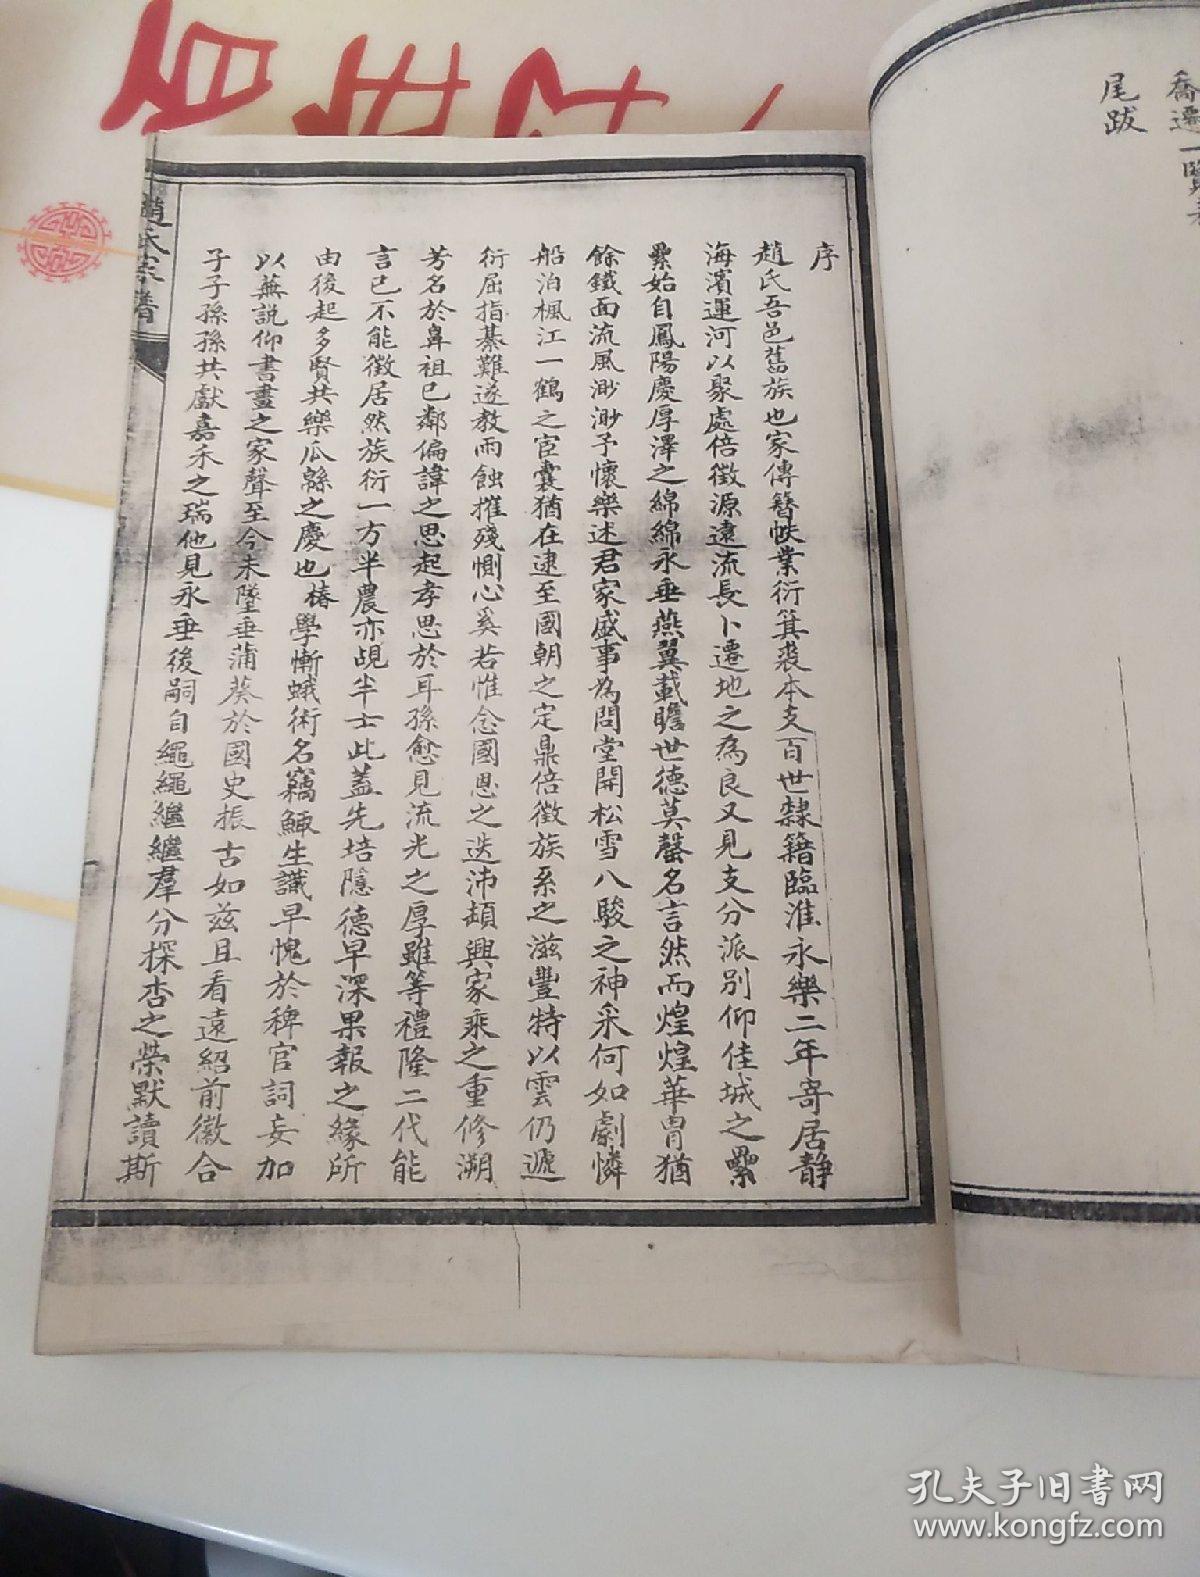 尾跋
序
趙氏吾邑舊族也家傳簪帙業衍箕裘本支百世隸籍臨淮永樂二年寄居靜
海濱運河以聚處倍徵源遠流長卜遷地之為良又見支分派別仰佳城之纍
纍始自鳳陽慶厚澤之綿綿永垂燕翼載瞻世德莫罄名言然而煌煌華胄猶
餘鐵面流風渺渺予懷樂述君家盛事為問堂開松雪八駿之神采何如劇憐
船泊楓江一鶴之宦囊猶在逮至國朝之定鼎倍徵族系之滋豐特以雲仍遞
衍屈指綦難遂教雨蝕摧殘惻心奚若惟念國恩之迭沛頻興家乘之重修溯
芳名於鼻祖已鄰偏諱之思起孝思於耳孫愈見流光之厚雖等禮隆二代能
言已不能徵居然族衍一方半農亦覘半士此蓋先培隱德早深果報之緣所
由後起多賢共樂瓜緜之慶也椿學慚蛾術名竊鯫生識早愧於稗官詞妄加
以蕪說仰書畫之家聲至今未墜垂蒲葵於國史振古如茲且看遠紹前徽合
子子孫孫共獻嘉禾之瑞他見永垂後嗣自繩繩繼繼羣分探杏之榮默讀斯
趙氏家譜
孔夫子旧书网
www.kongfz.com